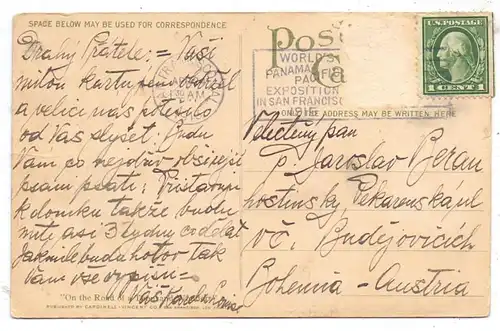 SPACE BELOW MAY BE USED FOR CORRESPONDENCE
Drahý Příteli:= Vaši
milou kartu jsem obdržel
a velice nás těšilo
od Vás slyšet. Budu
Vám po nejdřív obšírněji
psaní psáti; Přistavuji
k domku takže budu
míti asi 3 týdny co dělat
Jakmile budu hotov tak
Vám vše opíši
Váš Karel
"On the Road of a Thousand
PUBLISHED BY CARDINELL-VINCENT CO.
Post
Ca
U.S. POSTAGE
1 CENT 1
WORLD'S
PANAMA
PAC
EXPOSITION
IN SAN FRANCISCO
1915
ON ADDRESS MAY BE WRITTEN HERE
Velectěný pan
p. Jaroslav Beran
hostinský Pekarenská ul
v Č. Budějovicích
Bohemia - Austria